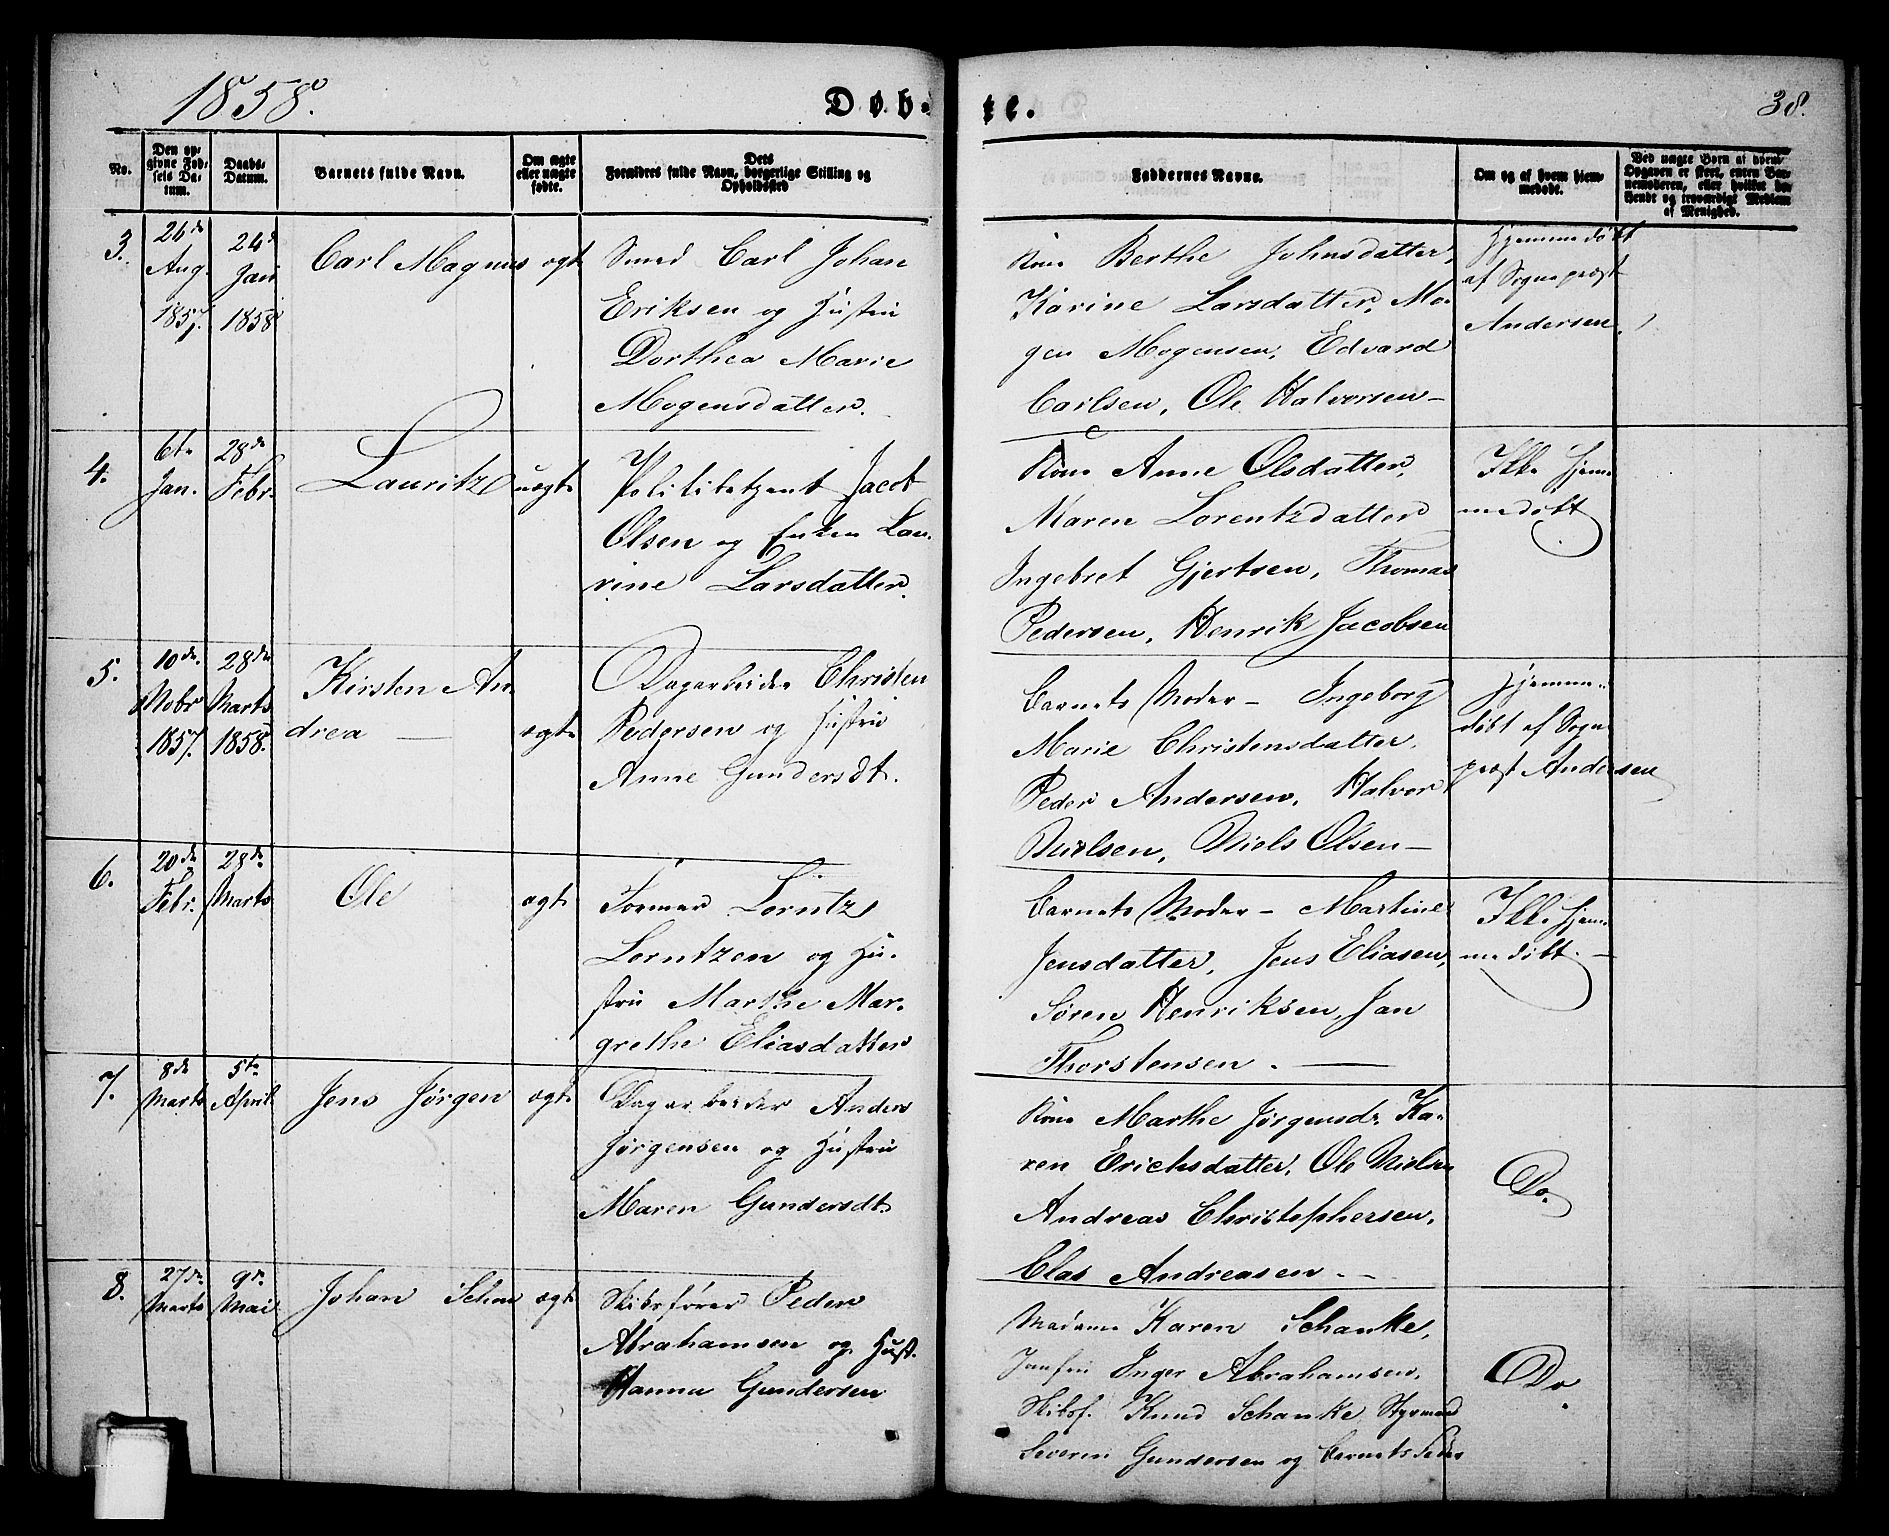 1858.
Døb-
te.
38.
No.
Den op-
givne Fød-
sels Da-
tum.
Daabs-
Datum.
Barnets fulde Navn.
Om ægte
eller uægte
fødte.
Dets
Forældres fulde Navn, borgerlige Stilling og
Opholdssted
Faddernes Navne.
Om og af hvem hjem-
medøbt.
Ved uægte Børn af hvem
Opgaven er skeet, enten Bar-
nemoderen, eller hvilket be-
kjendt og troværdigt Medlem
af Menighed.
3.
26de
Aug.
1857.
24de
Jan
1858
Carl Magnus
ægt
Smed Carl Johan
Eriksen og Hustru
Dorthea Marie
Mogensdatter.
Kone Berthe Johnsdatter,
Karine Larsdatter, Mo-
gen Mogensen, Edvard
Carlsen, Ole Halvorsen -
Hjemmedøbt
af Sognepræst
Andersen.
4.
6te
Jan.
28de
Febr.
Lauritz
uægte
Politibetjent Jacob
Olsen og Enken Lau-
rine Larsdatter.
Kone Anne Olsdatter,
Maren Lorentzdatter
Ingebret Gjertsen, Thomas
Pedersen, Henrik Jacobsen
Ikke hjem-
medøbt
5.
10de
Nobr
1857.
28de
Marts
1858.
Kirsten An-
drea —
ægte
Dagarbeider Christen
Pedersen og Hustru
Anne Gundersdt.
Barnets Moder - Ingeborg
Marie Christensdatter,
Peder Andersen, Halvor
Nielsen, Niels Olsen -
Hjemme-
døbt af Sogne-
præst Andersen
6.
20de
Febr.
28de
Marts
Ole
ægte
Tømmer Lorntz
Lorntzen og Hu-
stru Marthe Mar-
grethe Eliasdatter
Barnets Moder - Martine
Jensdatter, Jens Eliasen,
Søren Henriksen, Jan
Thorstensen. —
Ikke hjem-
medøbt. -
7.
8de
Marts
5te
April
Jens Jørgen
ægte
Dagarbeider Anders
Jørgensen og Hustru
Maren Gundersdt.
Kone Marthe Jørgensdr. Ka-
ren Erichsdatter, Ole Nielsen
Andreas Christophersen,
Clas Andreasen - -
Do.
8.
27de
Marts
9de
Mai
Johan
ægte
Skibsfører Peder
Abrahamsen og Hust.
Hanna Gundersen
Madame Karen Schanke,
Jomfru Inger Abrahamsen,
Skibsf. Knud Schanke, Styrmand
Severin Gundersen og Barnets Fader
Do